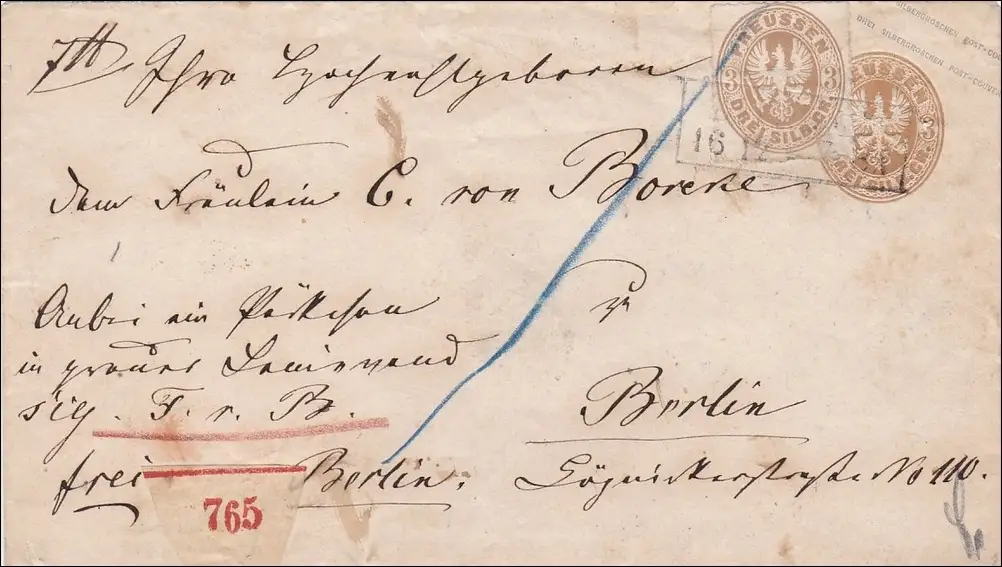 Ihro Hochwohlgeboren
dem Fräulein C. von Borcke
Anbei ein Päckchen
in grauer Leinewand
sig. F. v. B.
frei Berlin.
765
in
Berlin
Köpnickerstraße No 110.
PREUSSEN
3 3
DREI SILB.GR.
PREUSSEN
3
DREI SILB.GR.
16 12
SILBERGROSCHEN POST-COUVERT
DREI SILBERGROSCHEN POST-COUVERT